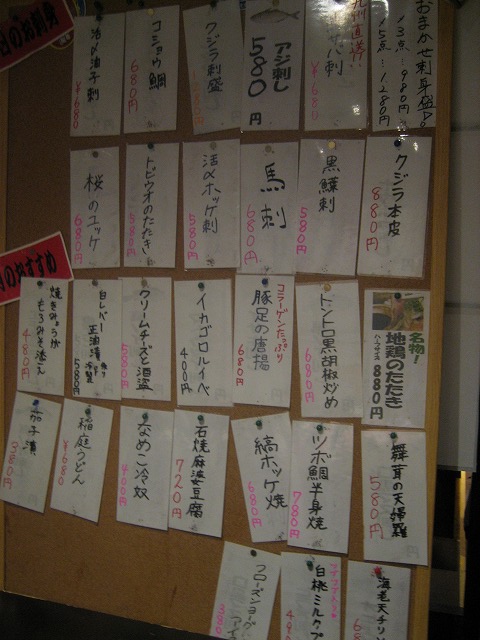 おまかせ刺身盛
3点…980円
5点…1,280円
九州直送!!
サバ刺
¥680
アジ刺し
580円
クジラ刺盛
コショウ鯛
680円
活〆油子刺
¥680
クジラ本皮
880円
黒鰈刺
580円
馬刺
680円
活〆ホッケ刺
580円
トビウオのたたき
580円
桜のユッケ
680円
のおすすめ
名物!
地鶏のたたき
ハーフサイズ 880円
トントロ黒胡椒炒め
680円
コラーゲンたっぷり
豚足の唐揚
680円
イカゴロルイベ
400円
クリームチーズと酒盗
580円
白レバー正油漬
580円
焼きみょうが
もろみそ添え
480円
舞茸の天婦羅
580円
ツボ鯛半身焼
780円
縞ホッケ焼
680円
石焼麻婆豆腐
720円
なめこ冷奴
400円
稲庭うどん
¥680
茄子漬
380円
海老天チリソ
白桃ミルクプ
フローズンヨーグ
380